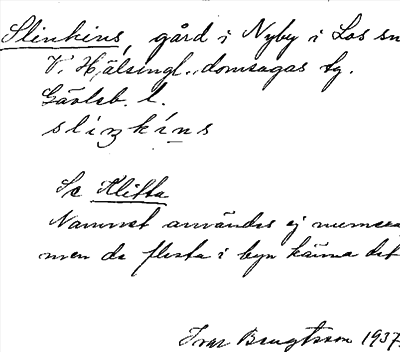 Slinkins, gård i Nyby i Los sn
V. Hälsingl. domsagas tg.
Gävleb. l.
slinkins
Se Klitta
Namnet användes ej numera
men de flesta i byn känna det
Ivar Bengtsson 1937